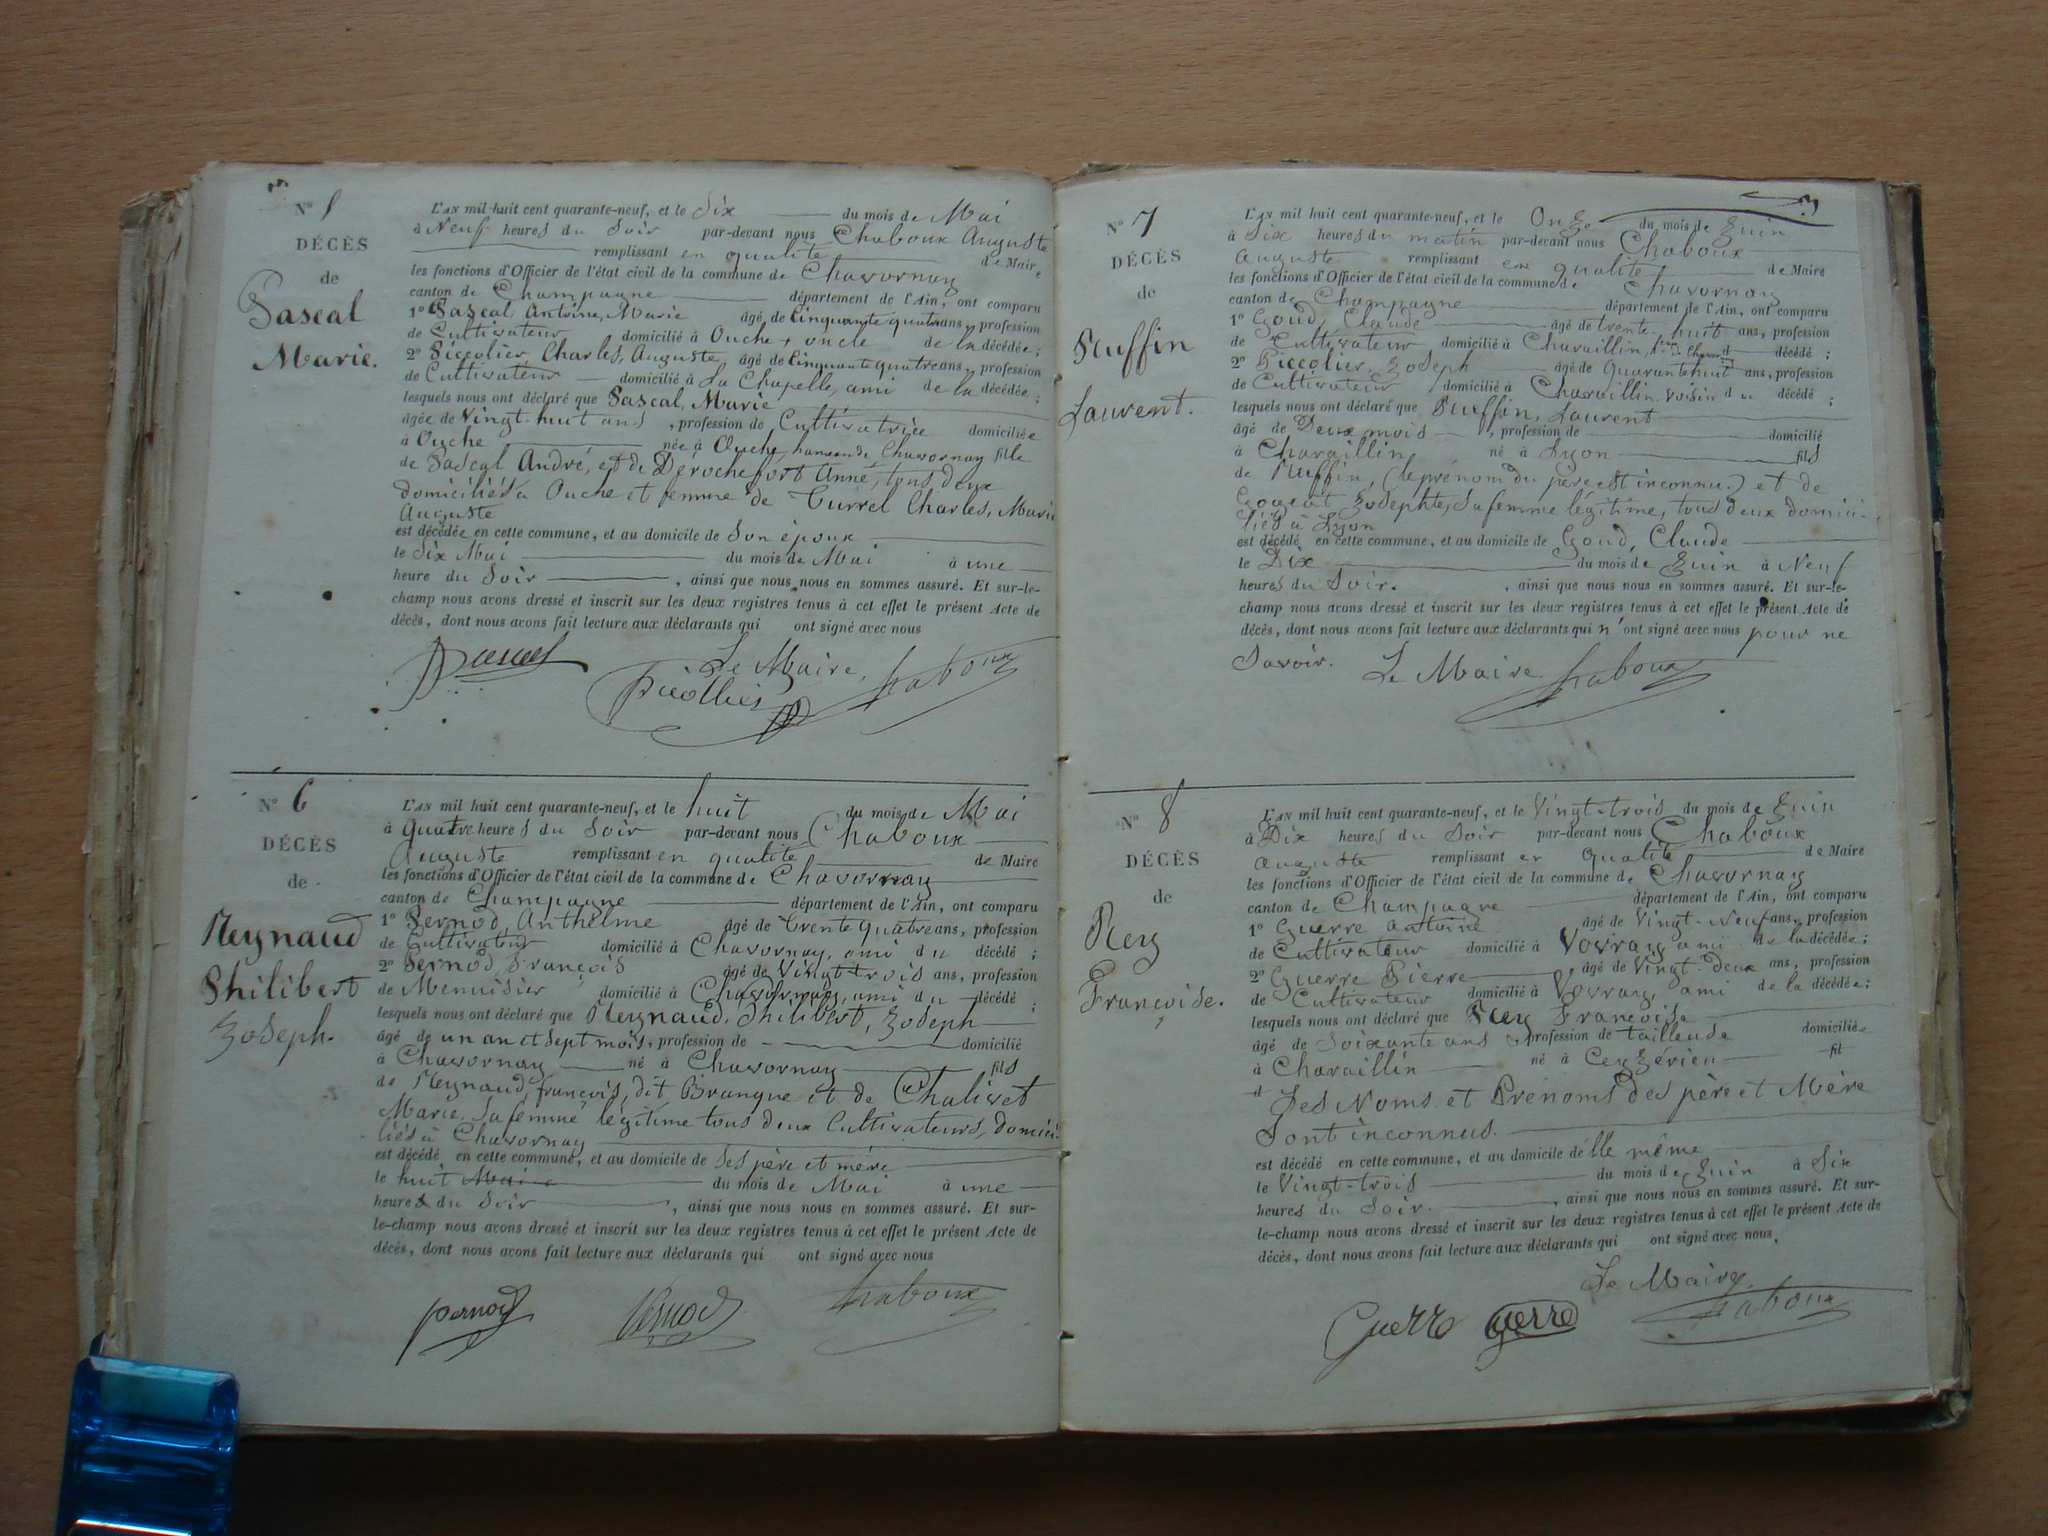 N° 5
DÉCÈS
de
Pascal
Marie.
L'AN mil huit cent quarante-neuf, et le Six du mois de Mai
à Neuf heures du Soir par-devant nous Chaboux Auguste
remplissant en qualité de Maire
les fonctions d'Officier de l'état civil de la commune de Chavornay
canton de Champagne département de l'Ain, ont comparu
1° Pascal Antoine, Marie âgé de Cinquante quatre ans, profession
de Cultivateur domicilié à Ouche, oncle de la décédée;
2° Piccolier, Charles, Auguste, âgé de Cinquante quatre ans, profession
de Cultivateur domicilié à La Chapelle, ami de la décédée;
lesquels nous ont déclaré que Pascal, Marie
âgée de Vingt-huit ans, profession de Cultivatrice domiciliée
à Ouche née à Ouche, hameau de Chavornay fille
de Pascal André, et de Derochefort Anne, tous deux
domiciliés à Ouche et femme de Turrel Charles, Marie
Auguste
est décédée en cette commune, et au domicile de Son époux
le Six Mai du mois de Mai à une
heure du Soir, ainsi que nous nous en sommes assuré. Et sur-le-
champ nous avons dressé et inscrit sur les deux registres tenus à cet effet le présent Acte de
décès, dont nous avons fait lecture aux déclarants qui ont signé avec nous
Pascal
Le Maire, Chaboux
Picollier
N° 6
DÉCÈS
de
Reynaud
Philibert
Joseph.
L'AN mil huit cent quarante-neuf, et le huit du mois de Mai
à Quatre heures du Soir par-devant nous Chaboux
Auguste remplissant en qualité de Maire
les fonctions d'Officier de l'état civil de la commune de Chavornay
canton de Champagne département de l'Ain, ont comparu
1° Pernod, Anthelme âgé de Trente quatre ans, profession
de Cultivateur domicilié à Chavornay, ami du décédé;
2° Pernod, François âgé de Vingt-trois ans, profession
de Menuisier domicilié à Chavornay, ami du décédé;
lesquels nous ont déclaré que Reynaud, Philibert, Joseph
âgé de un an et sept mois, profession de domicilié
à Chavornay né à Chavornay fils
de Reynaud, françois, dit Branque et de Chalivet
Marie, sa femme légitime tous deux Cultivateurs, domici-
liés à Chavornay
est décédé en cette commune, et au domicile de Ses père et mère
le huit Mai du mois de Mai à une
heure du Soir, ainsi que nous nous en sommes assuré. Et sur-
le-champ nous avons dressé et inscrit sur les deux registres tenus à cet effet le présent Acte de
décès, dont nous avons fait lecture aux déclarants qui ont signé avec nous
pernod Pernod Chaboux
3
N° 7
DÉCÈS
de
Ruffin
Laurent.
L'AN mil huit cent quarante-neuf, et le Onze du mois de Juin
à Six heures du matin par-devant nous Chaboux
Auguste remplissant en qualité de Maire
les fonctions d'Officier de l'état civil de la commune de Chavornay
canton de Champagne département de l'Ain, ont comparu
1° Goud, Claude âgé de trente-huit ans, profession
de Cultivateur domicilié à Charaillin, décédé;
2° Piccolier, Joseph âgé de Quarante huit ans, profession
de Cultivateur domicilié à Charaillin, voisin du décédé;
lesquels nous ont déclaré que Ruffin, Laurent
âgé de Deux mois, profession de domicilié
à Charaillin né à Lyon fils
de Ruffin, (le prénom du père est inconnu.) et de
Josephte, sa femme légitime, tous deux domici-
liés à Lyon
est décédé en cette commune, et au domicile de Goud, Claude
le Dix du mois de Juin à Neuf
heures du Soir., ainsi que nous nous en sommes assuré. Et sur-le-
champ nous avons dressé et inscrit sur les deux registres tenus à cet effet le présent Acte de
décès, dont nous avons fait lecture aux déclarants qui n'ont signé avec nous pour ne
Savoir. Le Maire Chaboux
N° 8
DÉCÈS
de
Rey
Françoise.
L'AN mil huit cent quarante-neuf, et le Vingt-trois du mois de Juin
à Dix heures du Soir par-devant nous Chaboux
Auguste remplissant en qualité de Maire
les fonctions d'Officier de l'état civil de la commune de Chavornay
canton de Champagne département de l'Ain, ont comparu
1° Guerre Antoine âgé de Vingt-Neuf ans, profession
de Cultivateur domicilié à Vovray ami de la décédée;
2° Guerre Pierre âgé de Vingt-deux ans, profession
de Cultivateur domicilié à Vovray, ami de la décédée;
lesquels nous ont déclaré que Rey Françoise
âgé de Soixante ans, profession de tailleuse domiciliée
à Charaillin né à Ceyzérieu fil
d Les Noms et Prénoms des père et Mère
Sont inconnus.
est décédé en cette commune, et au domicile d'elle même
le Vingt-trois du mois de Juin à Six
heures du Soir., ainsi que nous nous en sommes assuré. Et sur-
le-champ nous avons dressé et inscrit sur les deux registres tenus à cet effet le présent Acte de
décès, dont nous avons fait lecture aux déclarants qui ont signé avec nous,
Le Maire
Guerre guerre Chaboux